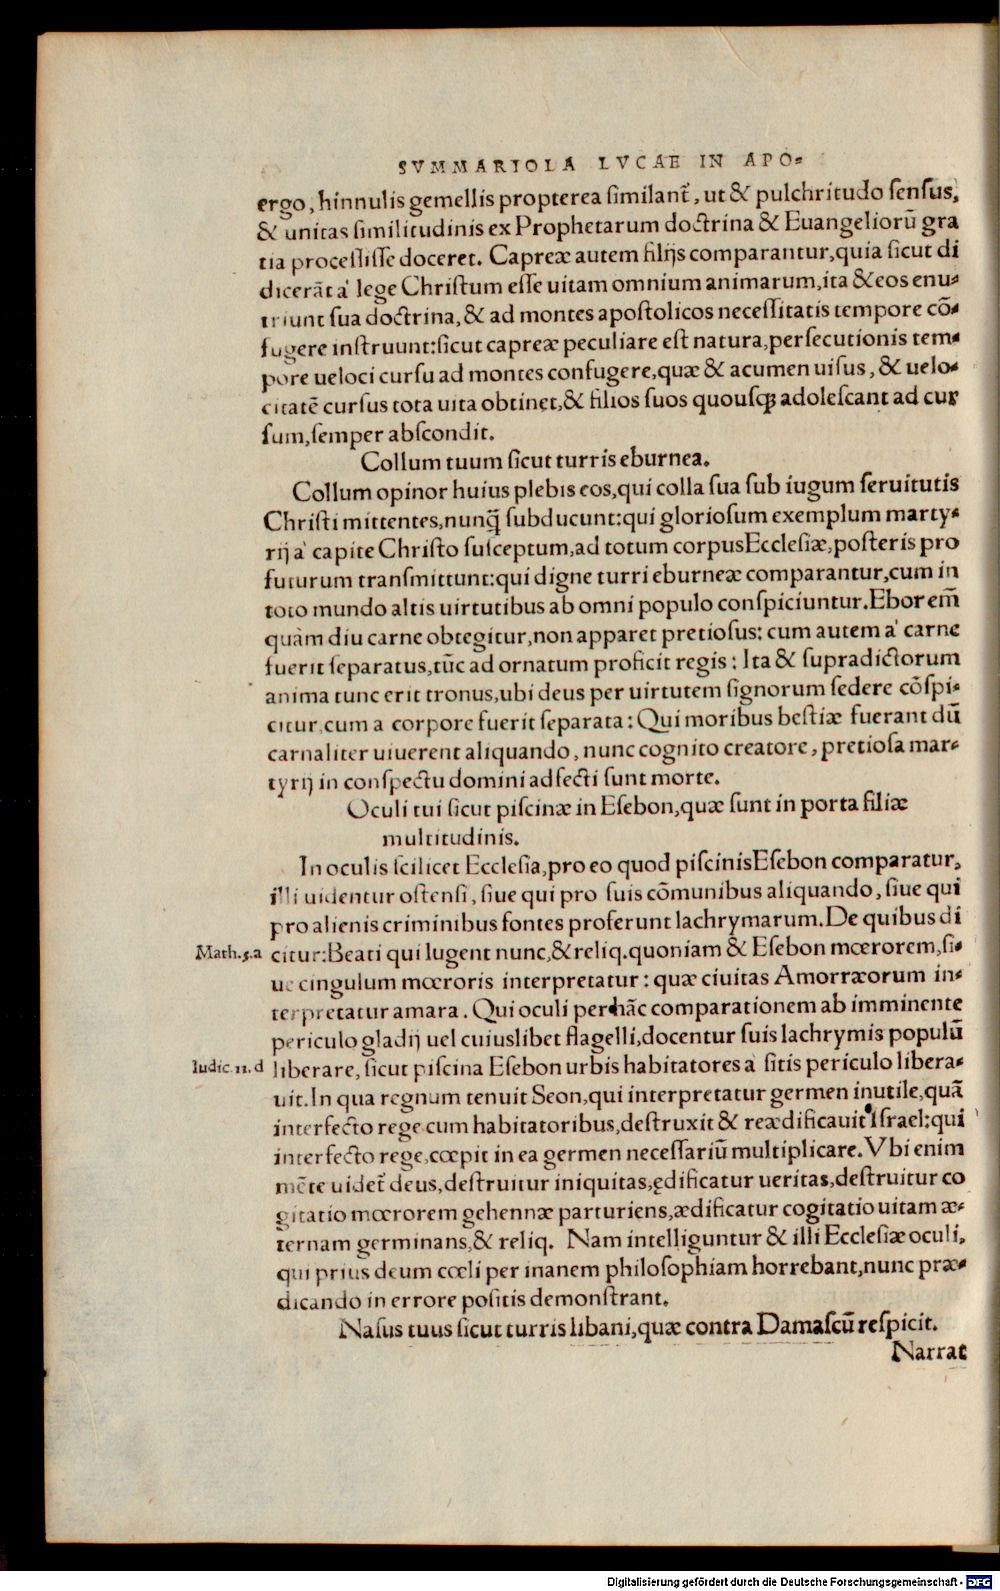 SVMMARIOLA LVCAE IN APO-
ergo, hinnulis gemellis propterea similant̃, ut & pulchritudo sensus,
& unitas similitudinis ex Prophetarum doctrina & Euangeliorũ gra
tia processisse doceret. Capreæ autem filijs comparantur, quia sicut di
dicerãt à lege Christum esse uitam omnium animarum, ita & eos enu-
triunt sua doctrina, & ad montes apostolicos necessitatis tempore cõ-
fugere instruunt: sicut capreæ peculiare est natura, persecutionis tem-
pore ueloci cursu ad montes confugere, quæ & acumen uisus, & uelo-
citatẽ cursus tota uita obtinet, & filios suos quousq; adolescant ad cur
sum, semper abscondit.
Collum tuum sicut turris eburnea.
Collum opinor huius plebis eos, qui colla sua sub iugum seruitutis
Christi mittentes, nunq̃ subducunt: qui gloriosum exemplum marty-
rij à capite Christo susceptum, ad totum corpus Ecclesiæ, posteris pro
futurum transmittunt: qui digne turri eburneæ comparantur, cum in
toto mundo altis uirtutibus ab omni populo conspiciuntur. Ebor em̃
quàm diu carne obtegitur, non apparet pretiosus: cum autem à carne
fuerit separatus, tũc ad ornatum proficit regis: Ita & supradictorum
anima tunc erit tronus, ubi deus per uirtutem signorum sedere cõspi-
citur, cum a corpore fuerit separata: Qui moribus bestiæ fuerant dũ
carnaliter uiuerent aliquando, nunc cognito creatore, pretiosa mar-
tyrij in conspectu domini adfecti sunt morte.
Oculi tui sicut piscinæ in Esebon, quæ sunt in porta filiæ
multitudinis.
In oculis scilicet Ecclesia, pro eo quod piscinis Esebon comparatur,
illi uidentur ostensi, siue qui pro suis cõmunibus aliquando, siue qui
pro alienis criminibus fontes proferunt lachrymarum. De quibus di
Math. 5. a
citur: Beati qui lugent nunc, & reliq. quoniam & Esebon mœrorem, si-
ue cingulum mœroris interpretatur: quæ ciuitas Amorræorum in-
terpretatur amara. Qui oculi per hãc comparationem ab imminente
periculo gladij uel cuiuslibet flagelli, docentur suis lachrymis populũ
Iudic. 11. d
liberare, sicut piscina Esebon urbis habitatores à sitis periculo libera-
uit. In qua regnum tenuit Seon, qui interpretatur germen inutile, quã
interfecto rege cum habitatoribus, destruxit & reædificauit Israel: qui
interfecto rege, cœpit in ea germen necessariũ multiplicare. Vbi enim
mẽte uidet̃ deus, destruitur iniquitas, ędificatur ueritas, destruitur co
gitatio mœrorem gehennæ parturiens, ædificatur cogitatio uitam æ-
ternam germinans, & reliq. Nam intelliguntur & illi Ecclesiæ oculi,
qui prius deum cœli per inanem philosophiam horrebant, nunc præ-
dicando in errore positis demonstrant.
Nasus tuus sicut turris libani, quæ contra Damascũ respicit.
Narrat
Digitalisierung gefördert durch die Deutsche Forschungsgemeinschaft - DFG